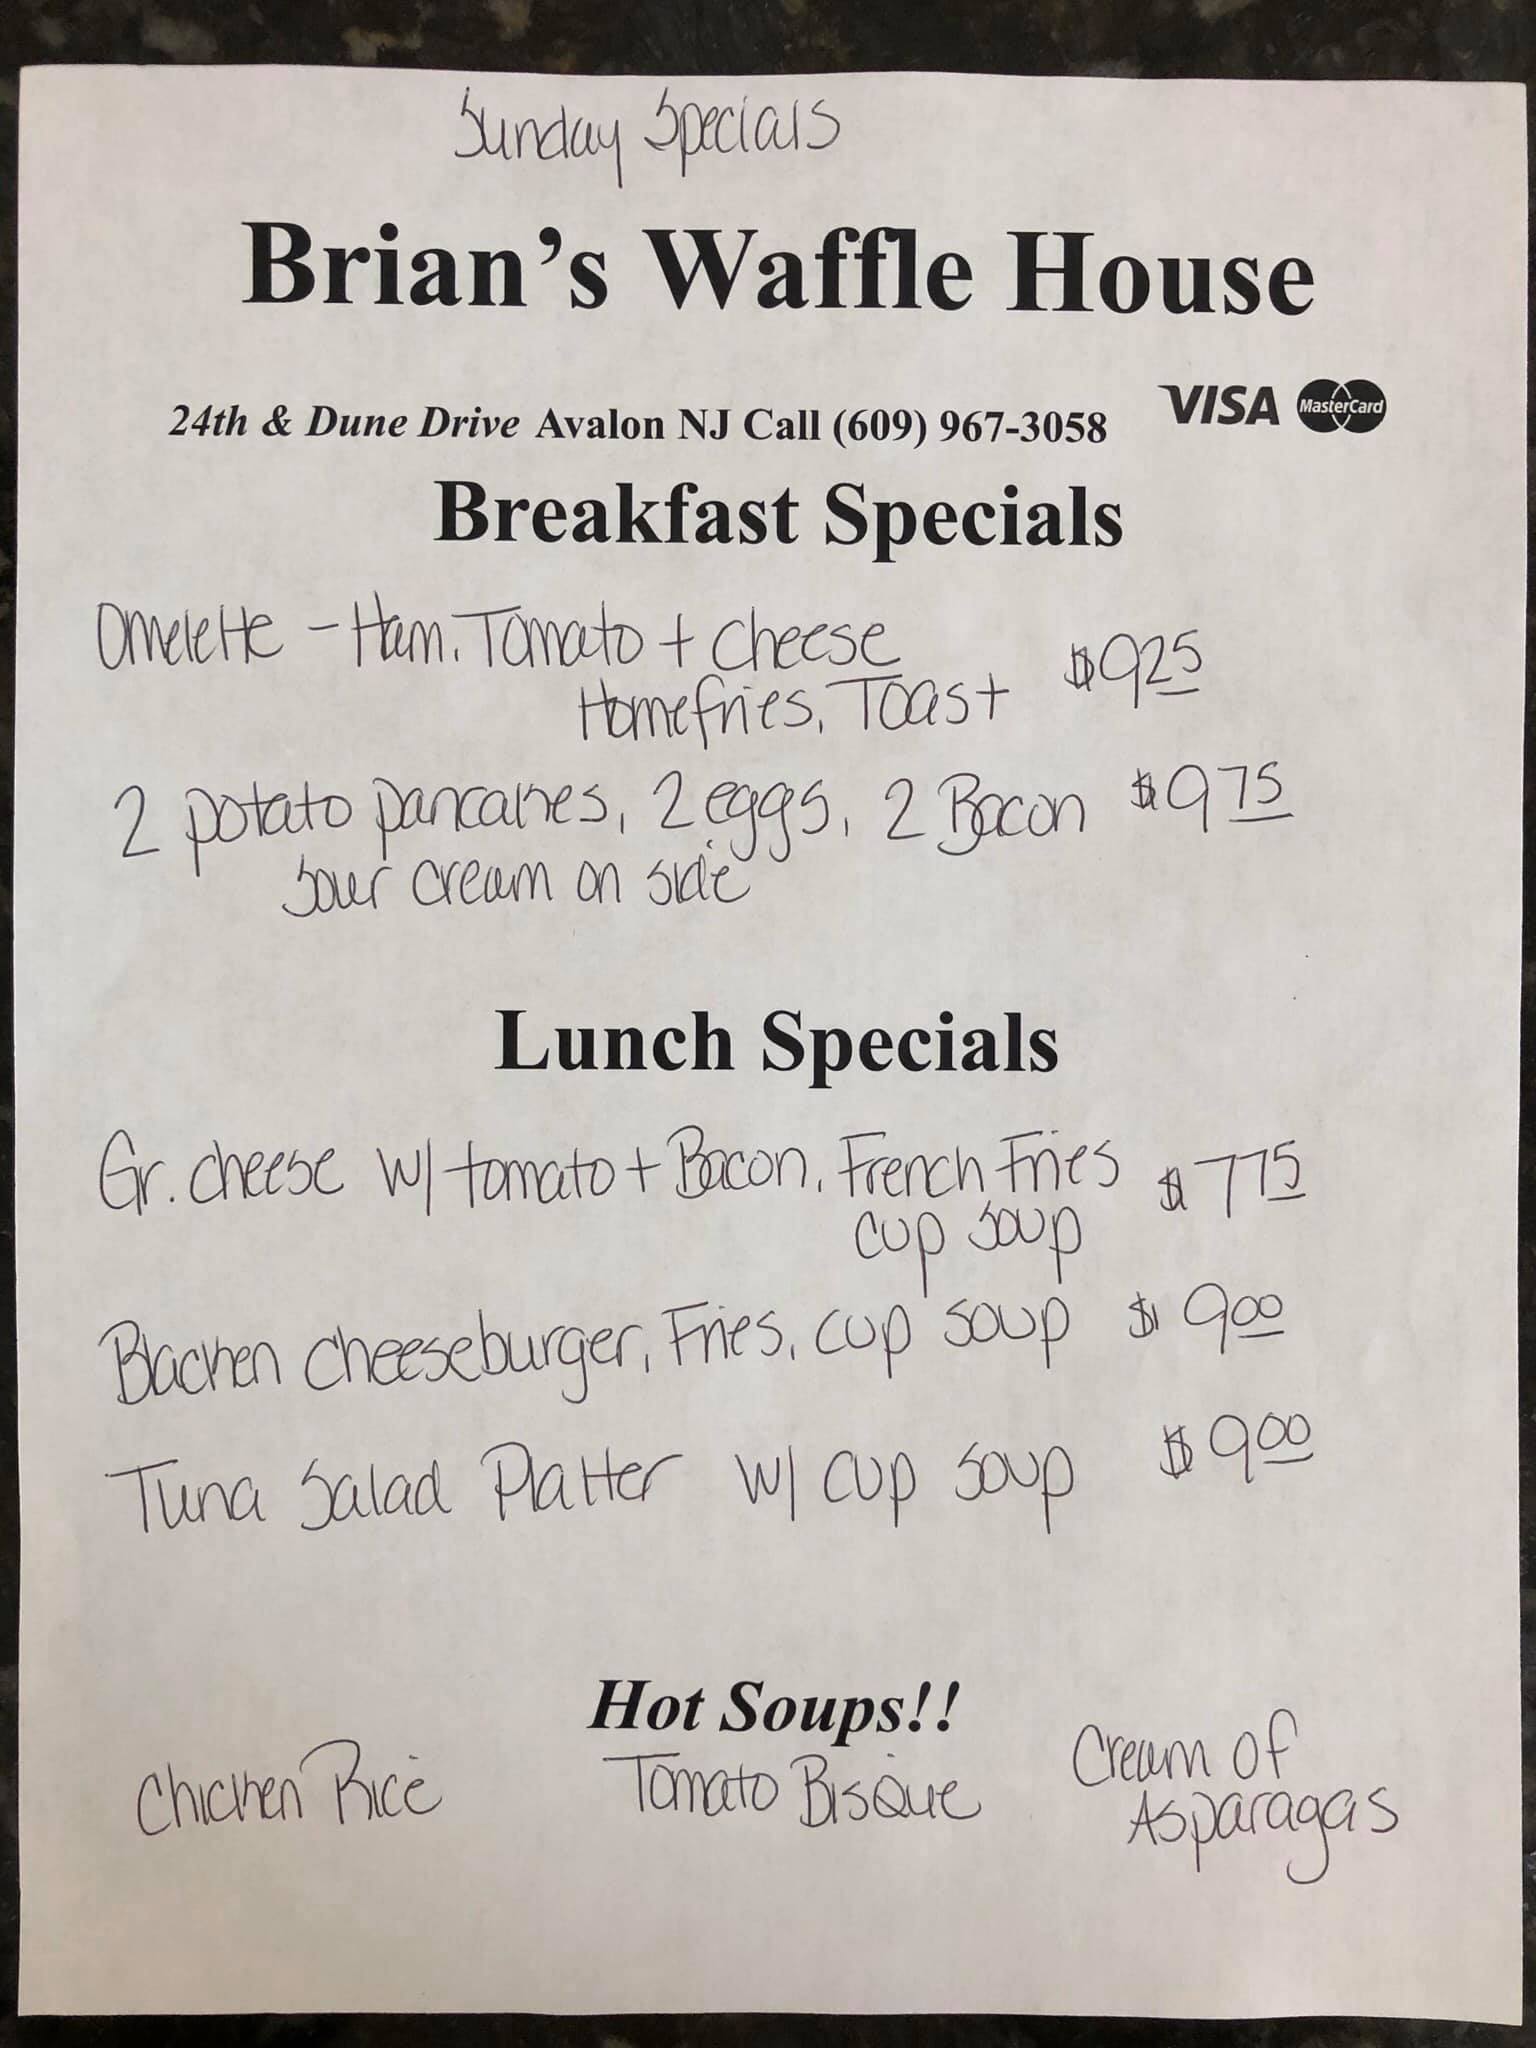 Sunday Specials
Brian's Waffle House
24th & Dune Drive Avalon NJ Call (609) 967-3058 VISA MasterCard
Breakfast Specials
Omelette - Ham, Tomato + Cheese
Homefries, Toast $925
2 potato pancakes, 2 eggs, 2 Bacon $975
sour cream on side
Lunch Specials
Gr. cheese w/ tomato + Bacon, French Fries $775
cup soup
Blacken cheeseburger, Fries, cup soup $900
Tuna Salad Platter w/ cup soup $900
Hot Soups!!
Chicken Rice Tomato Bisque Cream of
Asparagas